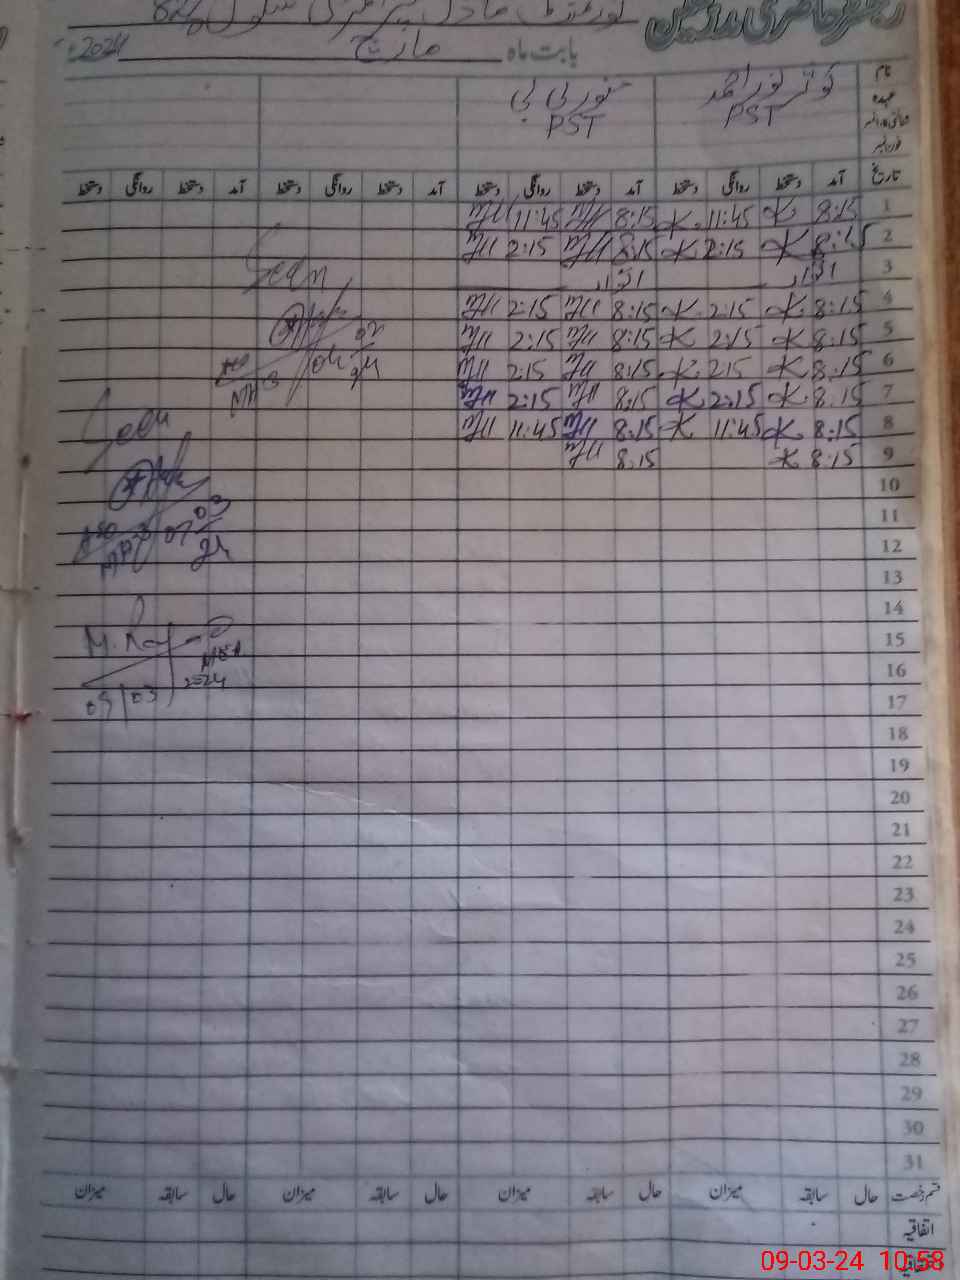 رجسٹر حاضری مدرسین گورنمنٹ ماڈل پرائمری سکول
بابت ماہ مارچ 2024
نام کوثر نور احمد منور بی بی
عہدہ PST PST
تاریخ آمد دستخط روانگی دستخط آمد دستخط روانگی دستخط آمد دستخط روانگی دستخط آمد دستخط روانگی دستخط
1 8:15 K 11:45 K 8:15 11:45
2 8:15 K 2:15 K 8:15 2:15
3 اتوار اتوار
4 8:15 K 2:15 K 8:15 2:15
5 8:15 K 2:15 K 8:15 2:15
6 8:15 K 2:15 K 8:15 2:15
7 8:15 K 2:15 K 8:15 2:15
8 8:15 K 11:45 K 8:15 11:45
9 8:15 K 8:15
Seen
04 03 24
Seen
07 03 24
10
11
12
13
14
15
16
MEA
09/03 2024
17
18
19
20
21
22
23
24
25
26
27
28
29
30
31
قسم رخصت حال سابقہ میزان حال سابقہ میزان حال سابقہ میزان حال سابقہ میزان
اتفاقیہ
09-03-24 10:58